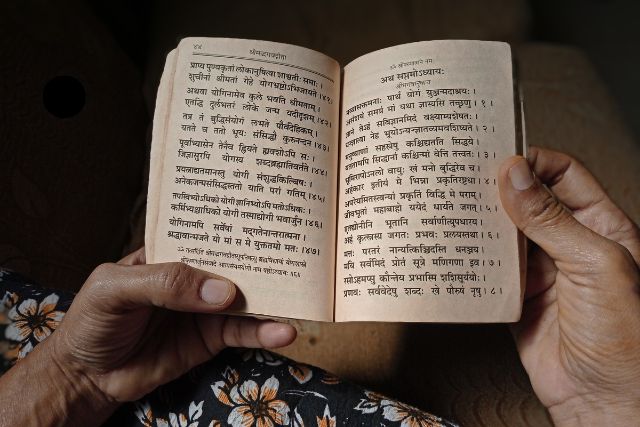 ४४
श्रीमद्भगवद्गीता
प्राप्य पुण्यकृतां लोकानुषित्वा शाश्वतीः समाः ।
शुचीनां श्रीमतां गेहे योगभ्रष्टोऽभिजायते ।४१।
अथवा योगिनामेव कुले भवति धीमताम् ।
एतद्धि दुर्लभतरं लोके जन्म यदीदृशम् ।४२।
तत्र तं बुद्धिसंयोगं लभते पौर्वदेहिकम् ।
यतते च ततो भूयः संसिद्धौ कुरुनन्दन ।४३।
पूर्वाभ्यासेन तेनैव ह्रियते ह्यवशोऽपि सः ।
जिज्ञासुरपि योगस्य शब्दब्रह्मातिवर्तते ।४४।
प्रयत्नाद्यतमानस्तु योगी संशुद्धकिल्बिषः ।
अनेकजन्मसंसिद्धस्ततो याति परां गतिम् ।४५।
तपस्विभ्योऽधिको योगी ज्ञानिभ्योऽपि मतोऽधिकः ।
कर्मिभ्यश्चाधिको योगी तस्माद्योगी भवार्जुन ।४६।
योगिनामपि सर्वेषां मद्गतेनान्तरात्मना ।
श्रद्धावान्भजते यो मां स मे युक्ततमो मतः ।४७।
अथ सप्तमोऽध्यायः
श्रीभगवानुवाच
मय्यासक्तमनाः पार्थ योगं युञ्जन्मदाश्रयः ।
असंशयं समग्रं मां यथा ज्ञास्यसि तच्छृणु । १ ।
ज्ञानं तेऽहं सविज्ञानमिदं वक्ष्याम्यशेषतः ।
यज्ज्ञात्वा नेह भूयोऽन्यज्ज्ञातव्यमवशिष्यते । २ ।
मनुष्याणां सहस्रेषु कश्चिद्यतति सिद्धये ।
यततामपि सिद्धानां कश्चिन्मां वेत्ति तत्त्वतः । ३ ।
भूमिरापोऽनलो वायुः खं मनो बुद्धिरेव च ।
अहंकार इतीयं मे भिन्ना प्रकृतिरष्टधा । ४ ।
अपरेयमितस्त्वन्यां प्रकृतिं विद्धि मे पराम् ।
जीवभूतां महाबाहो ययेदं धार्यते जगत् । ५ ।
एतद्योनीनि भूतानि सर्वाणीत्युपधारय ।
अहं कृत्स्नस्य जगतः प्रभवः प्रलयस्तथा । ६ ।
मत्तः परतरं नान्यत्किञ्चिदस्ति धनञ्जय ।
मयि सर्वमिदं प्रोतं सूत्रे मणिगणा इव । ७ ।
रसोऽहमप्सु कौन्तेय प्रभास्मि शशिसूर्ययोः ।
प्रणवः सर्ववेदेषु शब्दः खे पौरुषं नृषु । ८ ।